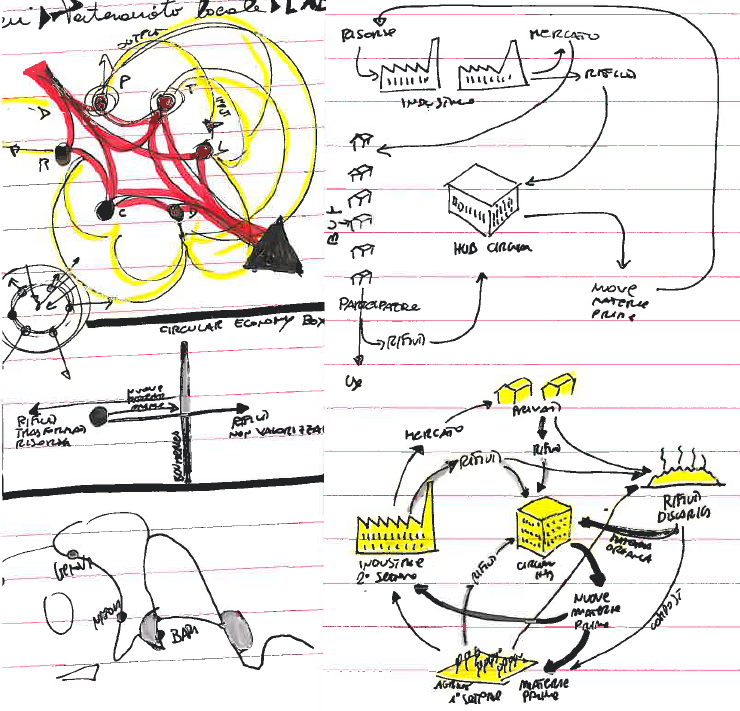 Partenariato locale
OUTPUT
P
INPUT
A
R
L
C
D
CIRCULAR ECONOMY BOX
NUOVE
MATERIE
PRIME
RIFIUTI
TRASFORMATI
RISORSA
RIFIUTI
NON VALORIZZA
GENOVA
NAPOLI
BARI
RISORSE
INDUSTRIE
MERCATO
RIFIUTI
HUB CIRCULAR
NUOVE
MATERIE
PRIME
PARTECIPATORE
RIFIUTI
PRIVATI
MERCATO
RIFIUTI
RIFIUTI
RIFIUTI
DISCARICA
INDUSTRIE
2° SETTORE
CIRCULAR
HUB
MATERIA
ORGANICA
RIFIUTI
NUOVE
MATERIE
PRIME
COMPOST
1° SETTORE
MATERIE
PRIME